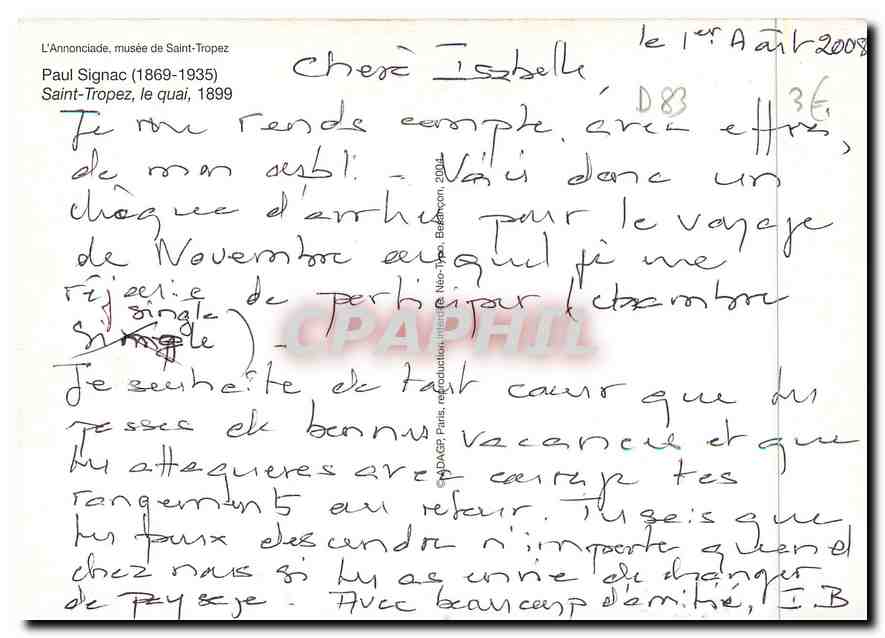 L'Annonciade, musée de Saint-Tropez
Paul Signac (1869-1935)
Saint-Tropez, le quai, 1899
le 1er Août 2008
Chère Isabelle
D83 3€
Je me rends compte, avec effroi,
de mon oubli - Voici donc un
chèque d'arrhes pour le voyage
de Novembre auquel je me
réjouis de participer (chambre
single
single) -
Je souhaite de tout cœur que tu
passes de bonnes vacances et que
tu attaqueras avec courage tes
rangements au retour. Tu sais que
tu peux descendre n'importe quand
chez nous si tu as envie de changer
de paysage - Avec beaucoup d'amitié, I.B
© ADAGP, Paris, reproduction interdite, Néo-Typo, Besançon, 2004
CPAPHIL